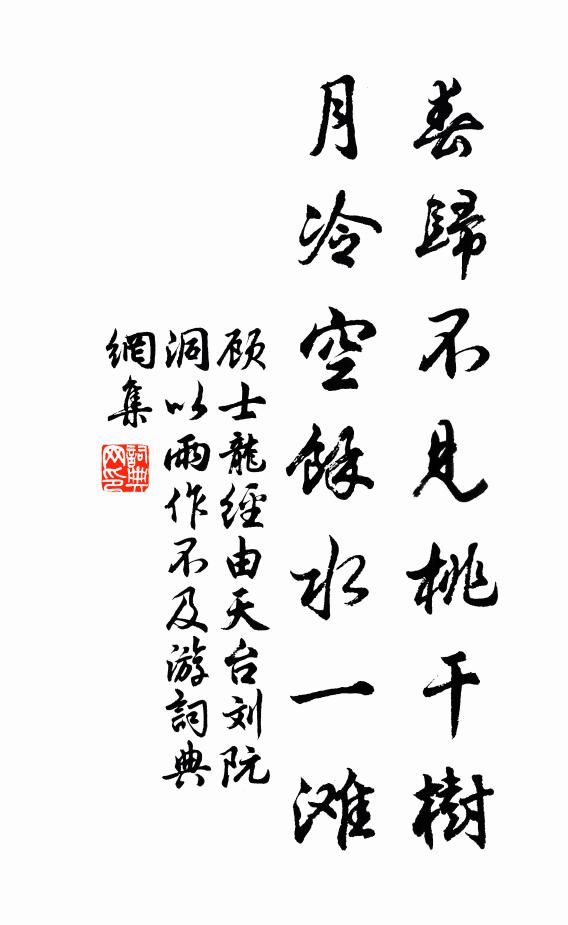 春歸不見桃千樹
月冷空餘水一滩
顾士龍經由天台刘阮
洞以雨作不及游詞典
網集
詞典
网印